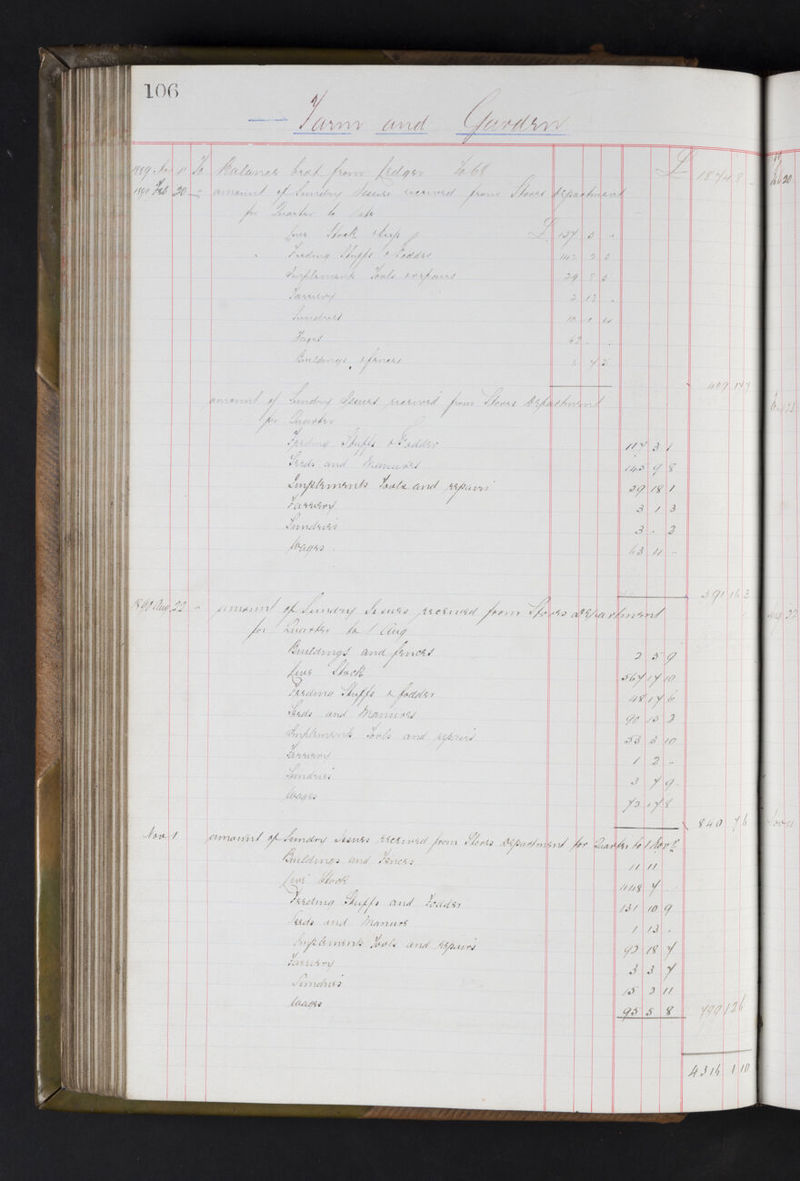 106
Farm and Garden
1889 Nov 11 To Balance brot from Ledger fo 68 £ 1874 8 -
1890 Feb 20 - amount of Sundry Issues received from Stores Department
for Quarter to date
Live Stock £ 137
Feeding Stuffs & Fodder 142
Implements Tools & repairs 29
Farriery 2 12 -
Sundries 10
Wages 62 . .
Buildings & fences
409
amount of Sundry Issues received from Stores Department
for Quarter
Feeding Stuffs & Fodder 117 3 1
Seeds and Manures 143 9 8
Implements Tools and repairs 29 18 1
Farriery 3 1 3
Sundries 3 - 2
Wages 63 11 -
391 16 3
1890 Aug 22 - amount of Sundry Issues received from Stores Department
for Quarter to 1 Aug
Buildings and fences 2 5 9
Live Stock 567 17 10
Feeding Stuffs & fodder 48 17 6
Seeds and Manures 90 13 2
Implements Tools and repairs 53 3 10
Farriery 1 2 -
Sundries 3 7 9
Wages 73 17 8
840 7 6
Nov 1 amount of Sundry Issues received from Stores Department for Quarter to 1 Nov
Buildings and Fences 11 11
Live Stock 448 7
Feeding Stuffs and Fodder 131 10 9
Seeds and Manure 1 13 -
Implements Tools and repairs 92 18 7
Farriery 3 3 7
Sundries 15 2 11
Wages 95 5 8 799 12 6
4316 1 10